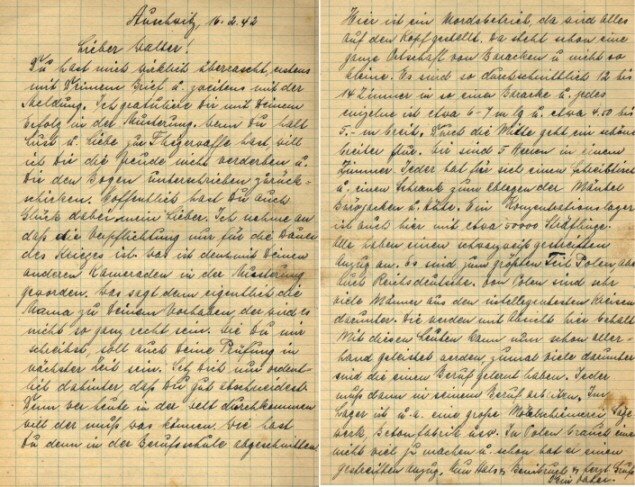 Auschwitz, 16.2.42
Lieber Walter!
Du hast mich wirklich überrascht, erstens
mit Deinem Brief u. zweitens mit der
Meldung. Ich gratuliere Dir mit Deinem
Erfolg in der Musterung. Wenn Du halt
Lust u. Liebe zur Fliegerwaffe hast, will
ich Dir die Freude nicht verderben u.
Dir den Bogen unterschrieben zurück-
schicken. Hoffentlich hast Du auch
Glück dabei mein Lieber. Ich nehme an
daß die Verpflichtung nur für die Dauer
des Krieges ist. Was ist denn mit Deinen
anderen Kameraden in der Musterung
geworden. Was sagt denn eigentlich die
Mama zu Deinem Vorhaben, der wird es
nicht so ganz recht sein. Wie Du mir
schreibst, soll auch Deine Prüfung in
nächster Zeit sein. Ich dich nur ordent-
lich dahinter, daß Du gut abschneidest.
Denn wer heute in der Welt durchkommen
will der muß was können. Wie hast
Du denn in der Berufsschule abgeschnitten.
Hier ist ein Mordsbetrieb, da wird alles
auf den Kopf gestellt. Da steht schon eine
ganze Ortschaft von Baracken u. nicht so
kleine. Es sind so durchschnittlich 12 bis
14 Zimmer in so einer Baracke u. jedes
einzelne ist etwa 6-7 m lg u. etwa 4.50 bis
5.- m breit. Durch die Mitte geht ein schöner
breiter Flur. Wir sind 5 Herren in einem
Zimmer. Jeder hat für sich einen Schreibtisch
u. einen Schrank zum Ablegen der Mäntel
Büro Jacken u. Hüte. Ein Konzentrationslager
ist auch hier mit etwa 50000 Häftlinge.
Alle haben einen schwarzweiß gestreiften
Anzug an. Es sind zum größten Teil Polen, aber
auch Reichsdeutsche. Von Polen sind sehr
viele Männer aus den intelligentesten Kreisen
darunter. Die werden mit Absicht hier behalten
Mit diesen Leuten kann nun schon aller-
hand geleistet werden, zumal viele darunter
sind die einen Beruf gelernt haben. Jeder
muß dann in seinem Beruf arbeiten. Im
Lager ist u.a. eine große Säge
werk Betonfabrik usw. In Polen braucht einer
nicht viel zu machen u. schon hat er einen
gestreiften Anzug. Nun Hals- u. Beinbruch u. herzl. Gruß
Dein Vater.